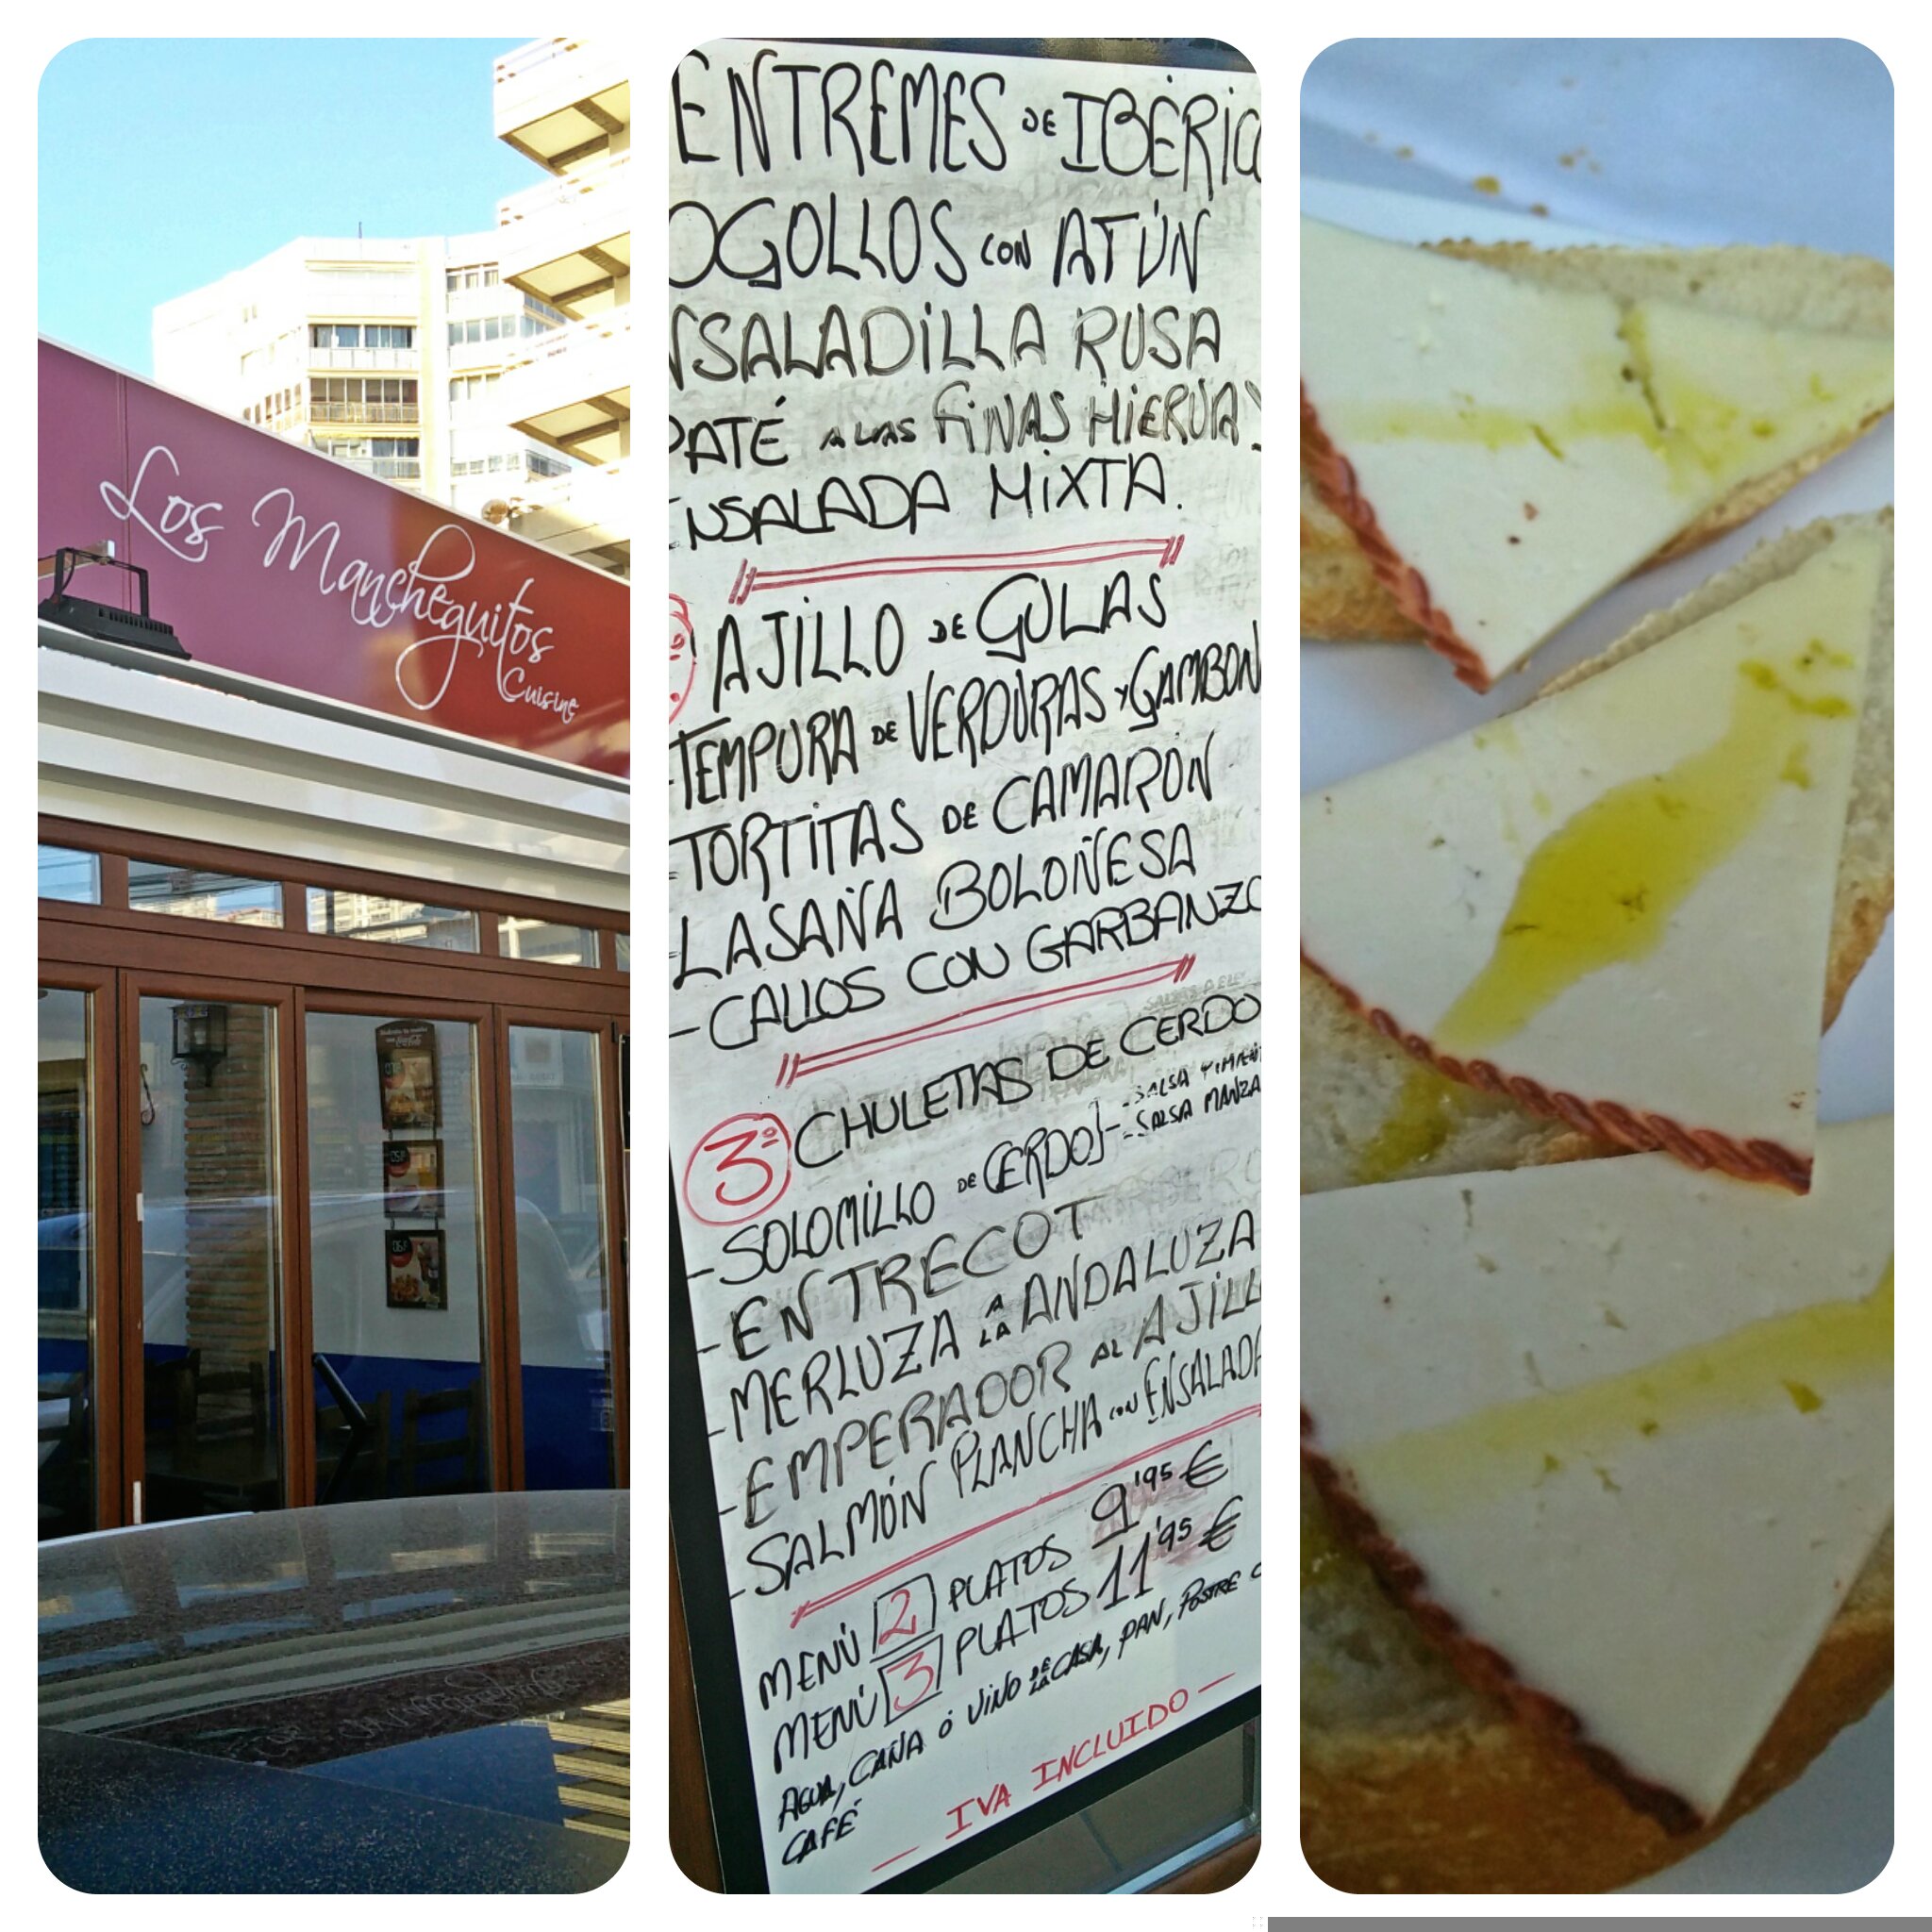 Los Mancheguitos
Cuisine
ENTREMES DE IBÉRICO
OGOLLOS CON ATÚN
NSALADILLA RUSA
PATÉ A LAS FINAS HIERVAS
ENSALADA MIXTA.
AJILLO DE GULAS
TEMPURA DE VERDURAS Y GAMBON
-TORTITAS DE CAMARÓN
-LASAÑA BOLOÑESA
-CALLOS CON GARBANZO
3º CHULETAS DE CERDO
-SOLOMILLO DE CERDO]- -SALSA PIMIENT
-SALSA MANZA
-ENTRECOT
-MERLUZA A LA ANDALUZA
-EMPERADOR AL AJILL
-SALMÓN PLANCHA CON ENSALADA
MENÚ 2 PLATOS 9'95 €
MENÚ 3 PLATOS 11'95 €
AGUA, CAÑA Ó VINO DE LA CASA, PAN, POSTRE O
CAFÉ
— IVA INCLUIDO —